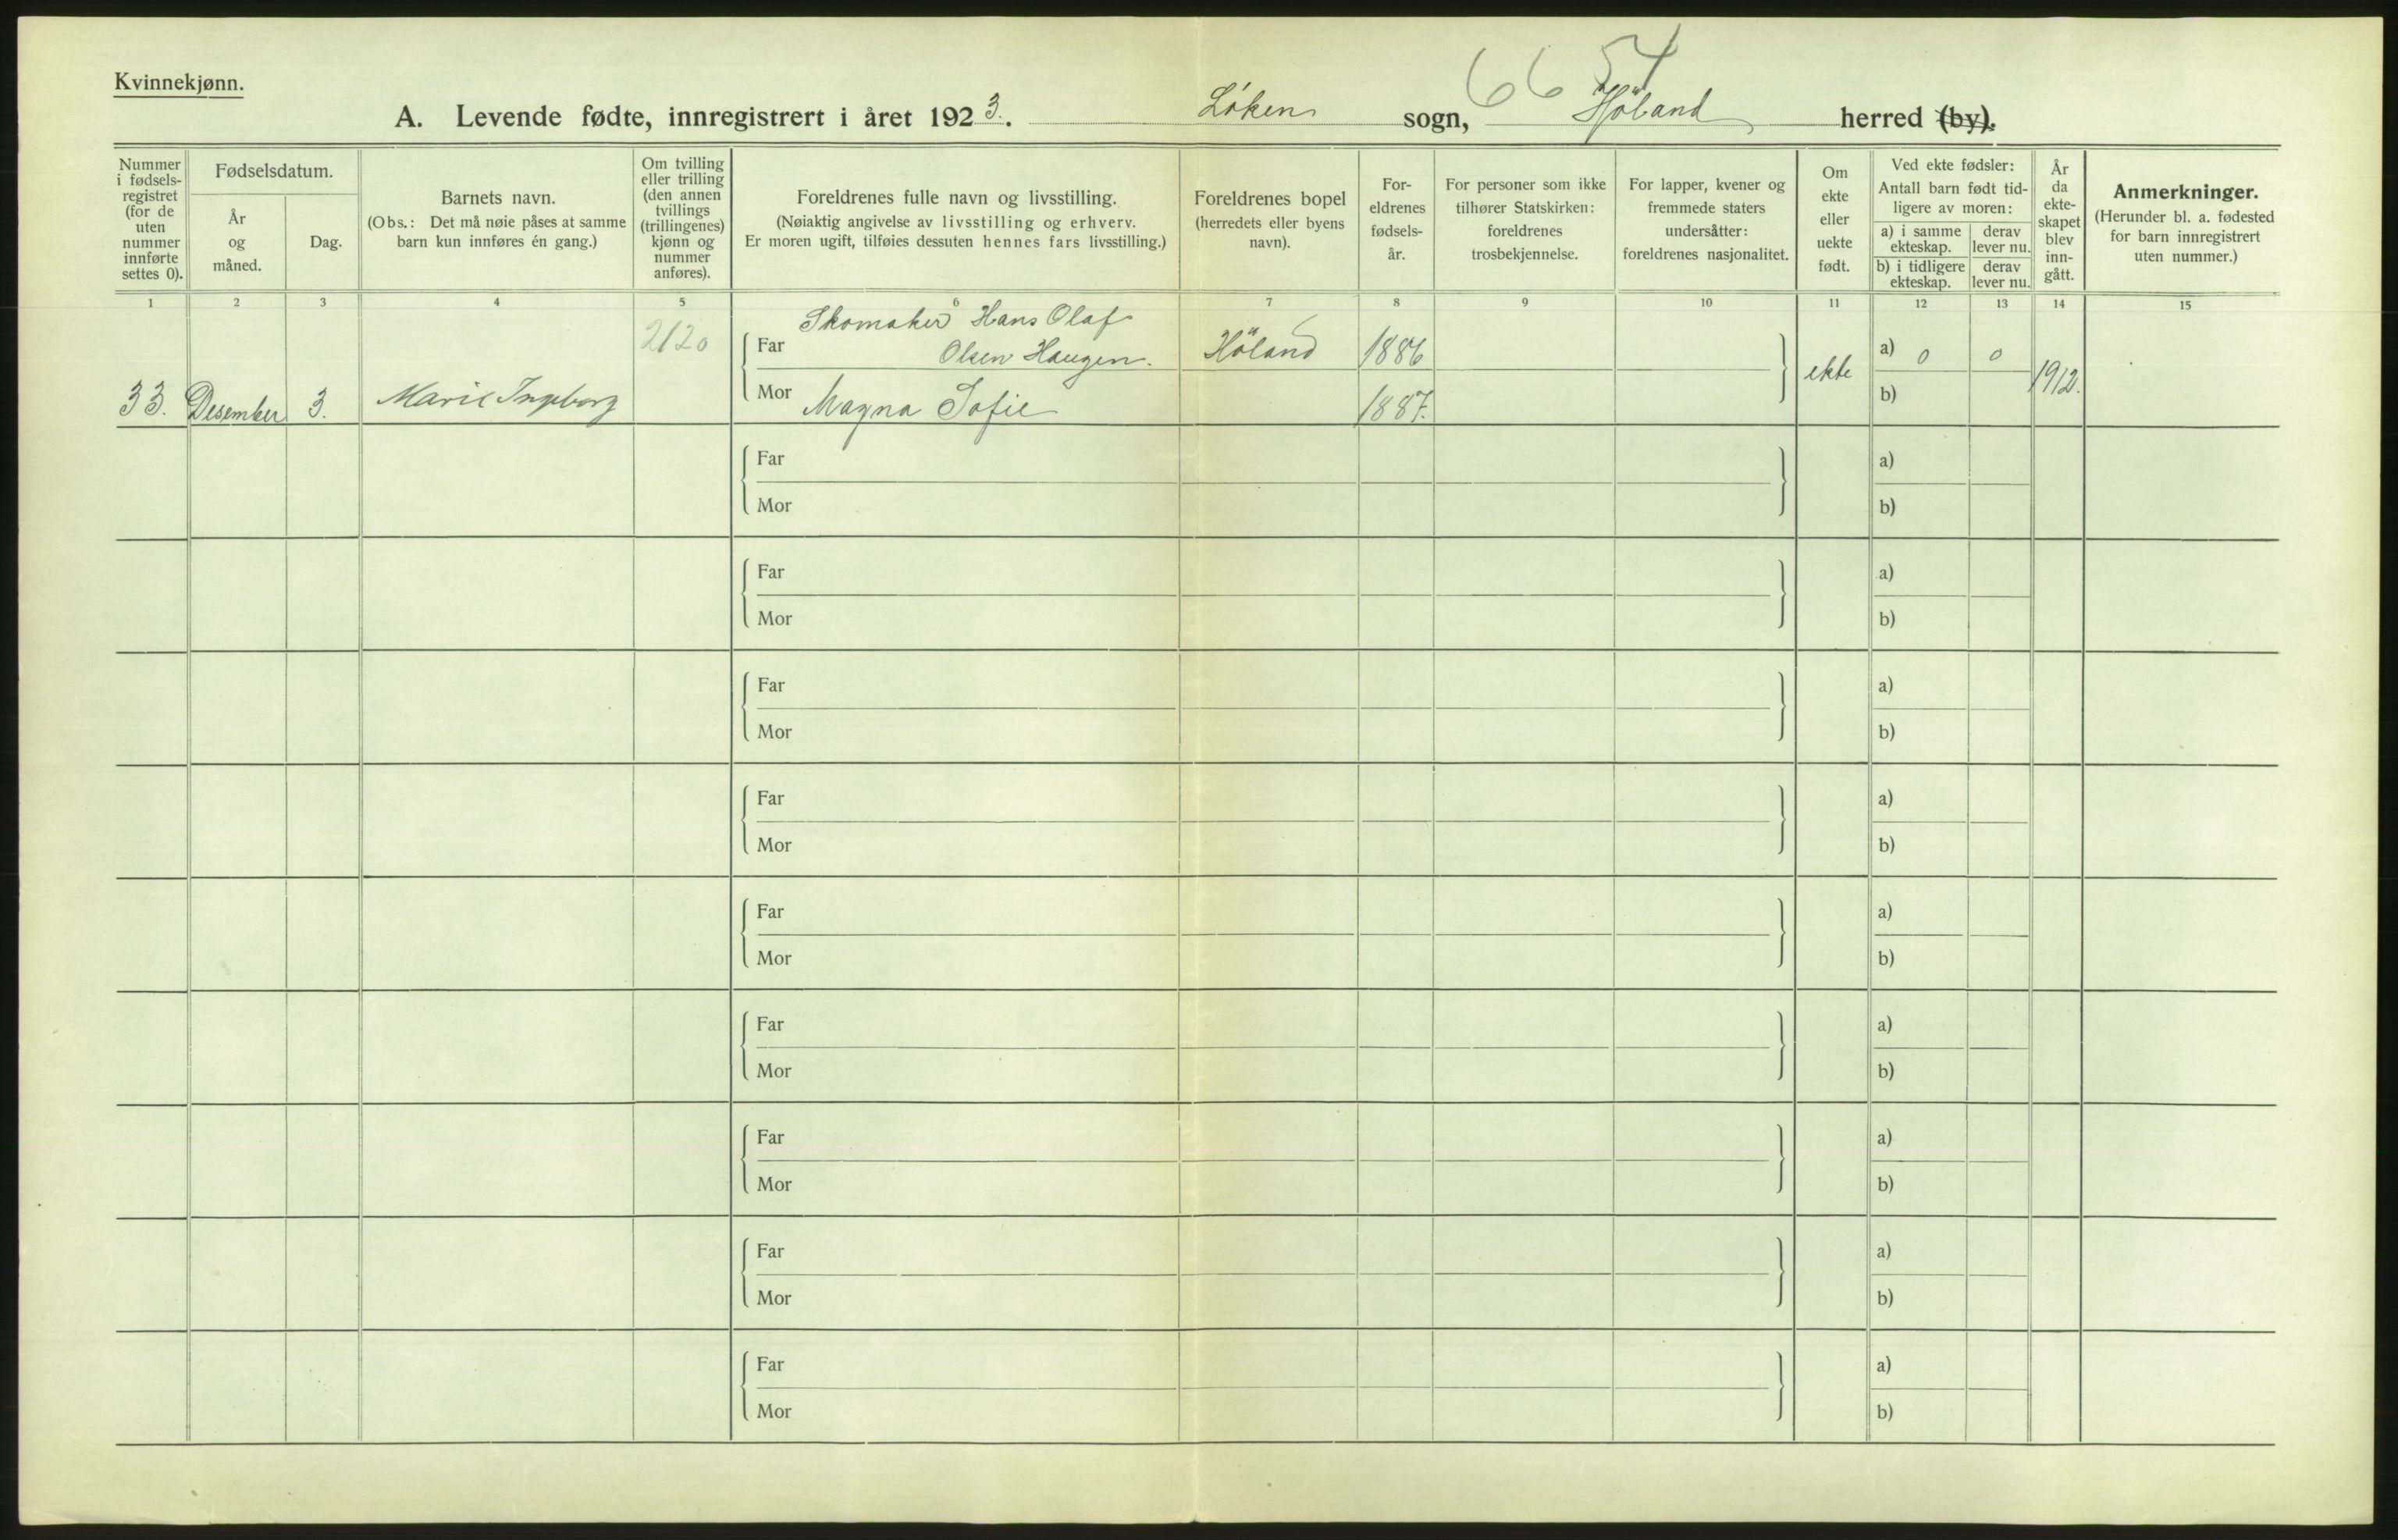 Kvinnekjønn.
66 54
A. Levende fødte, innregistrert i året 1923. Löken sogn, Höland herred (by).
Nummer i fødsels-registret (for de uten nummer innførte settes 0).
Fødselsdatum.
År og måned.
Dag.
Barnets navn.
(Obs.: Det må nøie påses at samme barn kun innføres én gang.)
Om tvilling eller trilling (den annen tvillings (trillingenes) kjønn og nummer anføres).
Foreldrenes fulle navn og livsstilling.
(Nøiaktig angivelse av livsstilling og erhverv.
Er moren ugift, tilføies dessuten hennes fars livsstilling.)
Foreldrenes bopel
(herredets eller byens navn).
For-eldrenes fødsels-år.
For personer som ikke tilhører Statskirken: foreldrenes trosbekjennelse.
For lapper, kvener og fremmede staters undersåtter: foreldrenes nasjonalitet.
Om ekte eller uekte født.
Ved ekte fødsler:
Antall barn født tid-ligere av moren:
a) i samme ekteskap.
derav lever nu.
b) i tidligere ekteskap.
derav lever nu.
År da ekte-skapet blev inn-gått.
Anmerkninger.
(Herunder bl. a. fødested for barn innregistrert uten nummer.)
1 2 3 4 5 6 7 8 9 10 11 12 13 14 15
33. Desember 3. Marie Ingeborg 2120
Far Skomaker Hans Olaf
Olsen Haugen. Höland 1886
Mor Magna Sofie 1887.
ekte a) 0 0 1912.
b)
Far a)
Mor b)
Far a)
Mor b)
Far a)
Mor b)
Far a)
Mor b)
Far a)
Mor b)
Far a)
Mor b)
Far a)
Mor b)
Far a)
Mor b)
Far a)
Mor b)